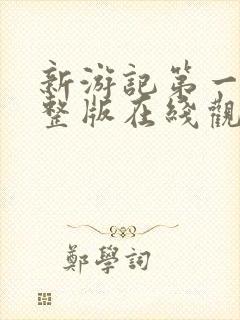 新游記第一
整版在綫觀
鄭學詞